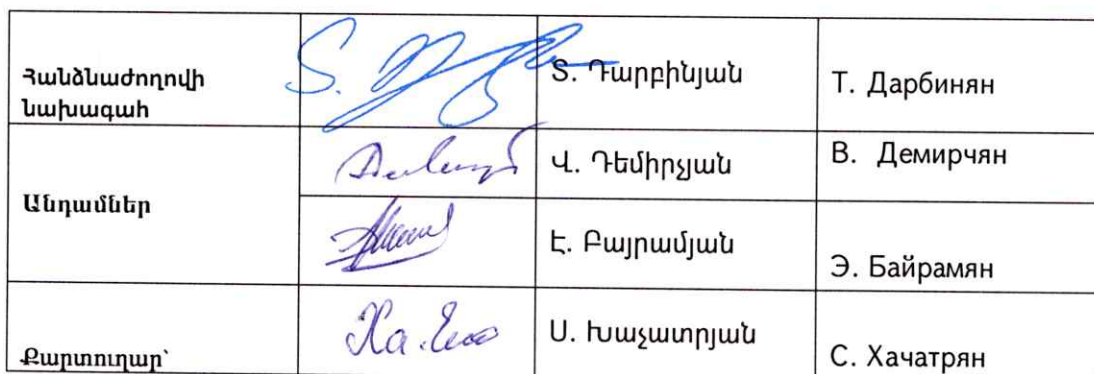 Հանձնաժողովի
նախագահ
Տ. Դարբինյան
Т. Дарбинян
Անդամներ
Վ. Դեմիրչյան
В. Демирчян
Է. Բայրամյան
Э. Байрамян
Քարտուղար՝
Ս. Խաչատրյան
С. Хачатрян